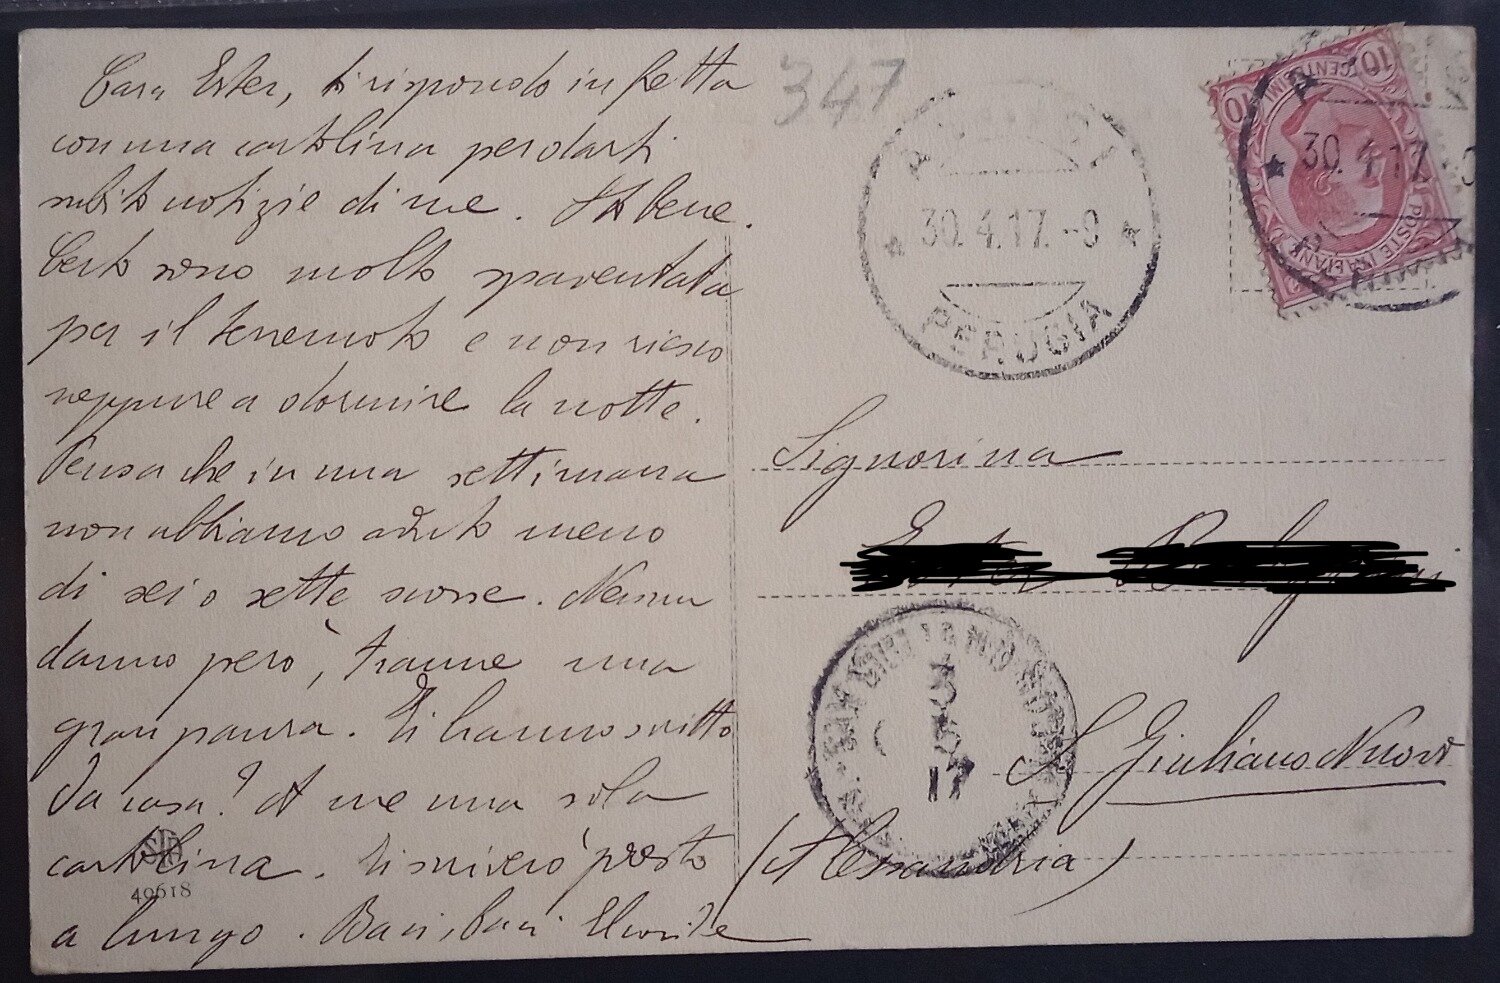 Cara Ester, ti rispondo in fretta
con una cartolina per darti
subito notizie di me. Sto bene.
Certo sono molto spaventata
per il terremoto e non riesco
neppure a dormire la notte.
Pensa che in una settimana
non abbiamo avuto meno
di sei o sette scosse. Nessun
danno però, tranne una
gran paura. Ti hanno scritto
da casa? A me una sola
cartolina. Ti scriverò presto
a lungo. Baci, baci
40618
347
30.4.17.-9
PERUGIA
10 CENTESIMI 10
POSTE ITALIANE
30.4.17.
Signorina
S. Giuliano Nuovo
(Alessandria)
17